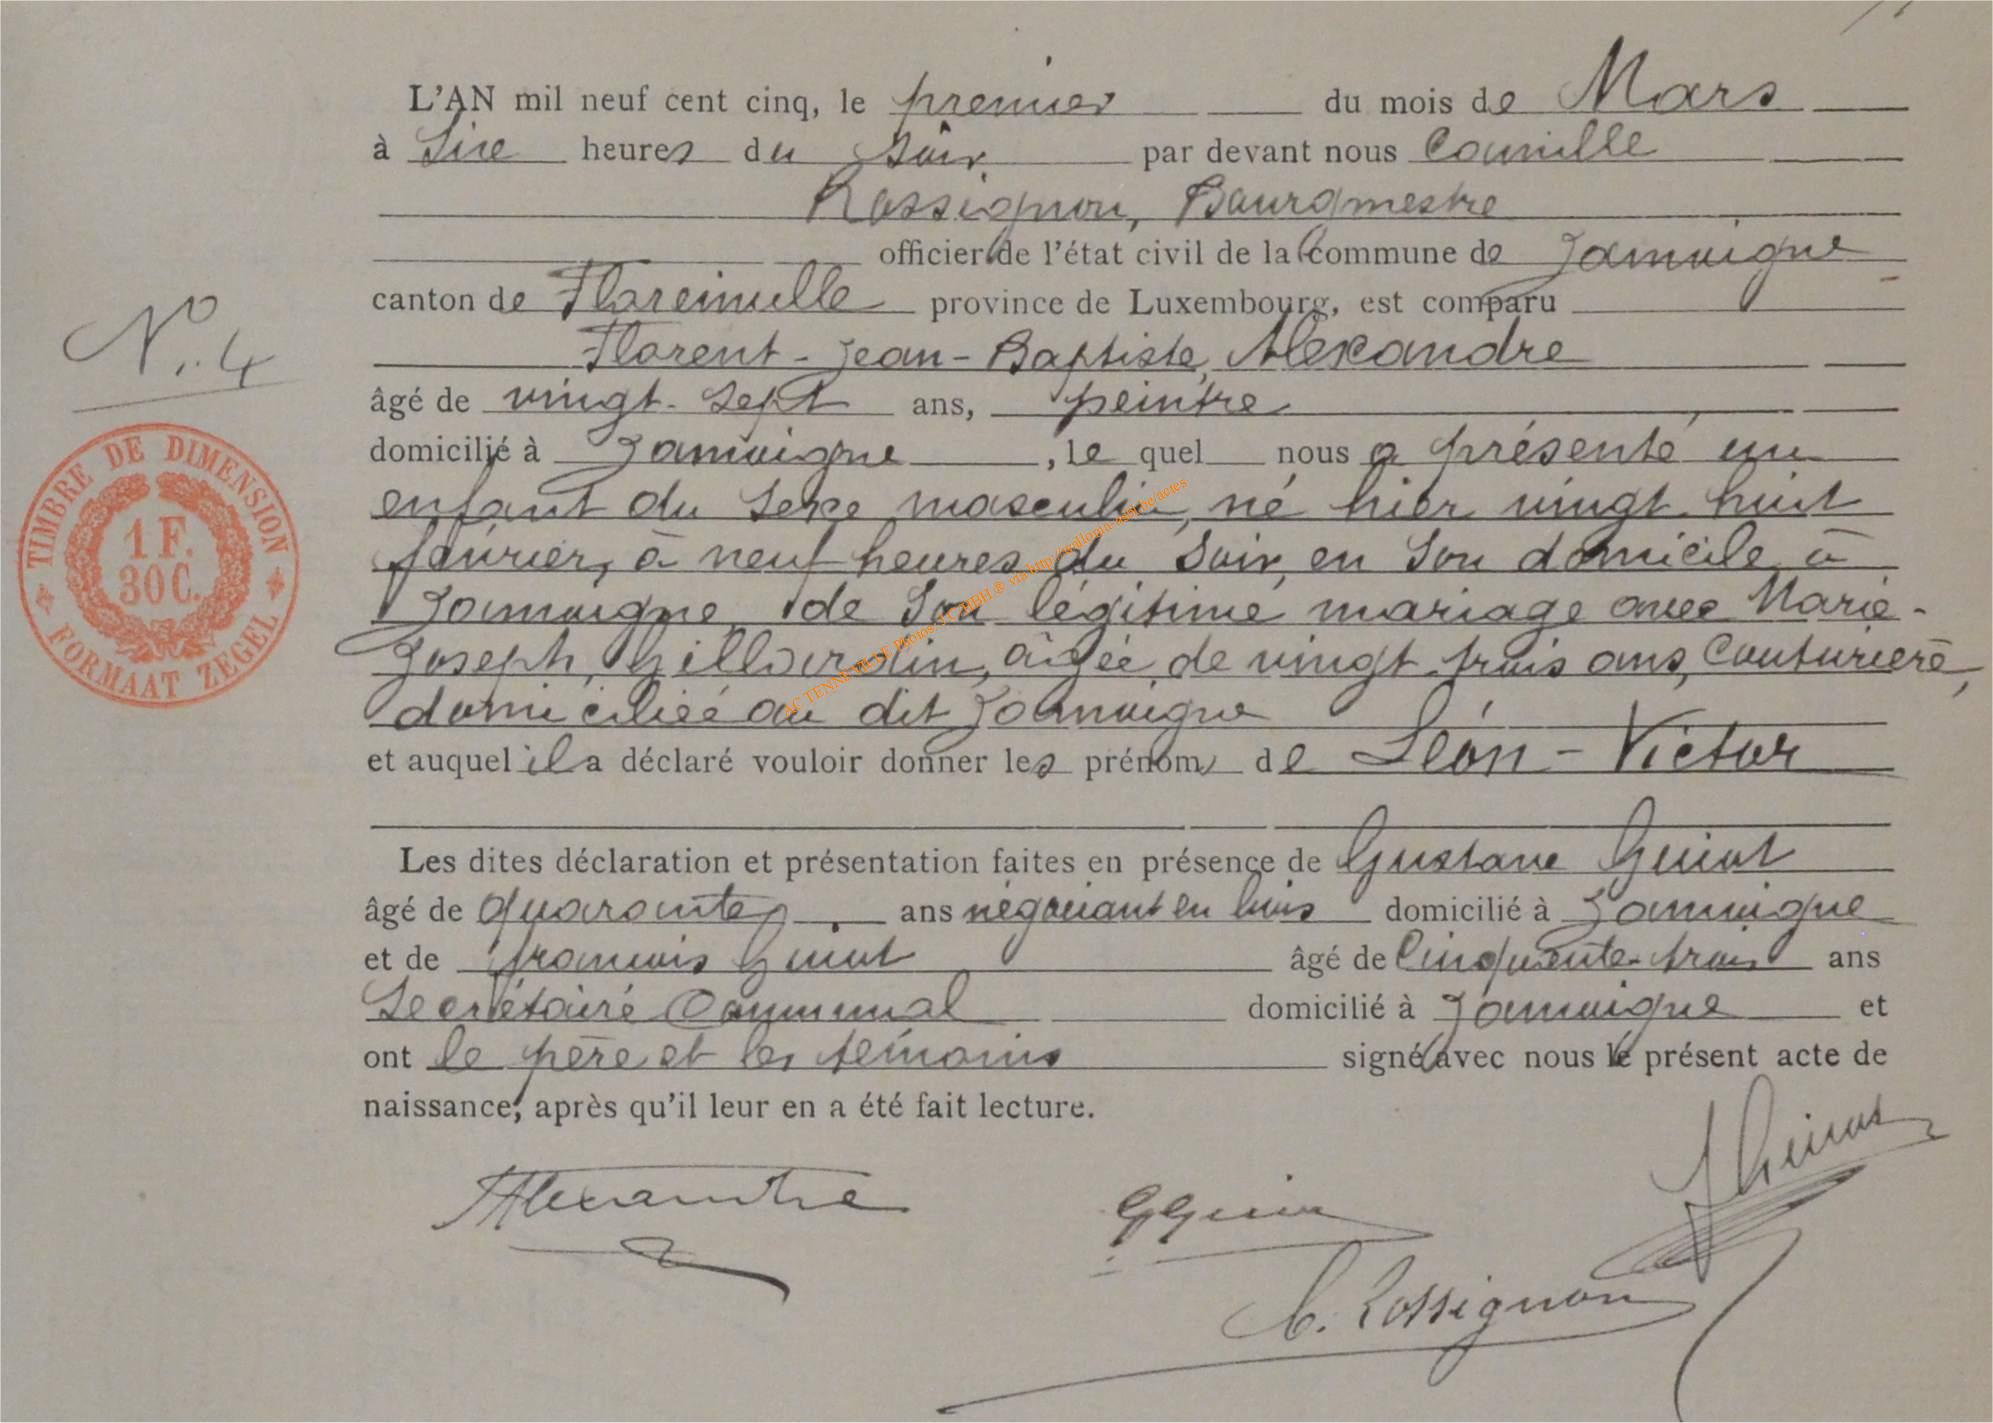 L'AN mil neuf cent cinq, le premier du mois de Mars
à Six heures du Soir par devant nous Camille
Rossignon, Bourgmestre
officier de l'état civil de la commune de Jamoigne
canton de Florenville province de Luxembourg, est comparu
Florent-Jean-Baptiste, Alexandre
âgé de vingt-sept ans, peintre
domicilié à Jamoigne, le quel nous a présenté un
N° 4
enfant du sexe masculin, né hier vingt huit
février, à neuf heures du Soir, en Son domicile, à
Jamoigne, de Son légitime mariage avec Marie-
Joseph, Gillardin, âgée de vingt trois ans, Couturière,
domiciliée au dit Jamoigne
et auquel il a déclaré vouloir donner les prénoms de Léon-Victor
Les dites déclaration et présentation faites en présence de Gustave Guiot
âgé de quarante ans négociant en bois domicilié à Jamoigne
et de François Guiot âgé de Cinquante-trois ans
Secrétaire Communal domicilié à Jamoigne et
ont le père et les témoins signé avec nous le présent acte de
naissance, après qu'il leur en a été fait lecture.
TIMBRE DE DIMENSION
1 F.
30 C.
FORMAAT ZEGEL
Alexandre
GGuiot
J Guiot
C. Rossignon